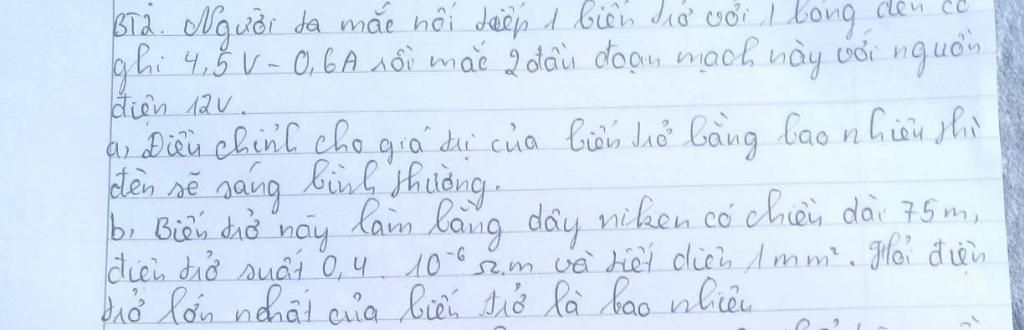 BT2. Người ta mắc nối tiếp 1 biến trở với 1 bóng đèn có
ghi 4,5V - 0,6A rồi mắc 2 đầu đoạn mạch này với nguồn
điện 12V.
a, Điều chỉnh cho giá trị của biến trở bằng bao nhiêu thì
đèn sẽ sáng bình thường.
b, Biến trở này làm bằng dây niken có chiều dài 75m,
điện trở suất 0,4. 10⁻⁶ Ω.m và tiết diện 1mm². Hỏi điện
trở lớn nhất của biến trở là bao nhiêu